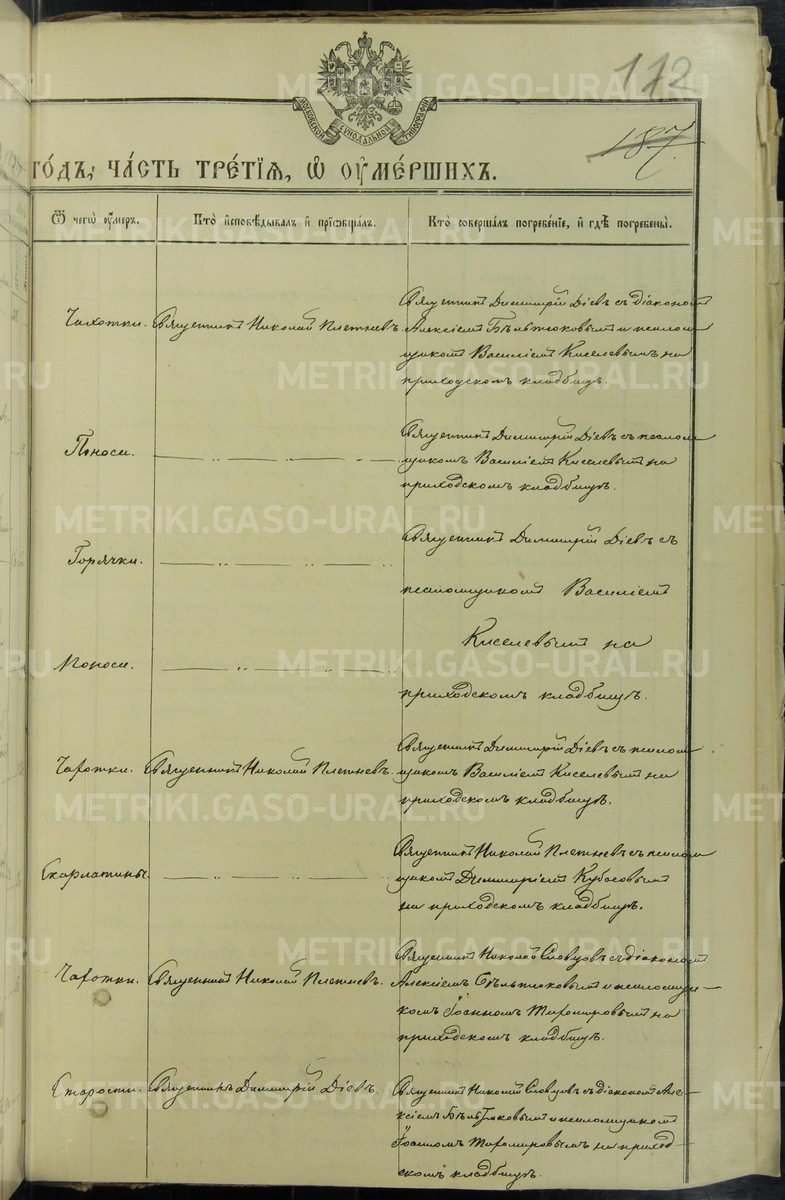 172
187.
МОСКОВСКОЙ СѴНОДАЛЬНОЙ ТИПОГРАФІИ
го́дъ, ча́сть тре́тїѧ, ѡ҆ ᲂу҆ме́ршихъ.
Ѿ чегѡ̀ ᲂу҆́меръ.
Кто̀ и҆сповѣ́дывалъ и҆ прїѡбща́лъ.
Кто̀ соверша́лъ погребе́нїе, и҆ гдѣ̀ погребены̀.
Чахотки.
Священникъ Николай Плетневъ.
Священникъ Димитрій Діевъ съ діакономъ
Алексіемъ Бѣльтюковымъ и псалом
щикомъ Василіемъ Киселевымъ на
приходскомъ кладбищѣ.
Поноса.
Священникъ Димитрій Діевъ съ псалом
щикомъ Василіемъ Киселевымъ на
приходскомъ кладбищѣ.
Горячки.
Священникъ Димитрій Діевъ съ
псаломщикомъ Василіемъ
Киселевымъ на
Поноса.
приходскомъ кладбищѣ.
Чахотки.
Священникъ Николай Плетневъ.
Священникъ Димитрій Діевъ съ псалом
щикомъ Василіемъ Киселевымъ на
приходскомъ кладбищѣ.
Скарлатины.
Священникъ Николай Плетневъ съ псалом
щикомъ Димитріемъ Кубасовымъ
на приходскомъ кладбищѣ.
Чахотки.
Священникъ Николай Плетневъ.
Священникъ Николай Словцовъ съ діакономъ
Алексіемъ Бѣльтюковымъ и псаломщи-
комъ Іоанномъ Тихомировымъ на
приходскомъ кладбищѣ.
Старости.
Священникъ Димитрій Діевъ.
Священникъ Николай Словцовъ съ діакономъ Але-
ксіемъ Бѣльтюковымъ и псаломщикомъ
Іоанномъ Тихомировымъ на приход-
скомъ кладбищѣ.
METRIKI.GASO-URAL.RU